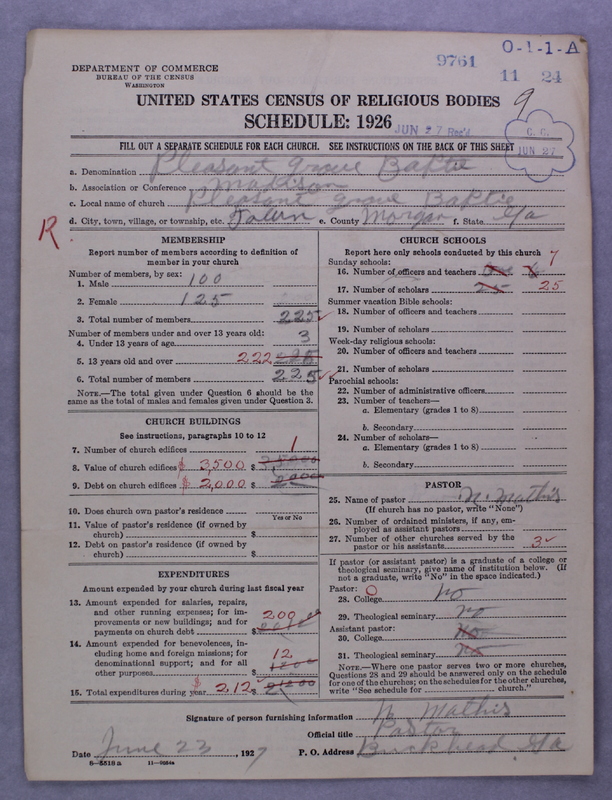 O-1-1-A
9761
11 24
DEPARTMENT OF COMMERCE
BUREAU OF THE CENSUS
WASHINGTON
UNITED STATES CENSUS OF RELIGIOUS BODIES 9
SCHEDULE: 1926 JUN 27 Rec'd
C. C.
JUN 27
FILL OUT A SEPARATE SCHEDULE FOR EACH CHURCH. SEE INSTRUCTIONS ON THE BACK OF THIS SHEET
a. Denomination Pleasant grove Baptie
b. Association or Conference Madison
c. Local name of church Pleasant grove Baptie
d. City, town, village, or township, etc. e. County Morgan f. State Ga
R.
MEMBERSHIP
Report number of members according to definition of
member in your church
Number of members, by sex:
1. Male 100
2. Female 125
3. Total number of members 225
Number of members under and over 13 years old:
4. Under 13 years of age 3
5. 13 years old and over 222 225
6. Total number of members 225
NOTE.—The total given under Question 6 should be the
same as the total of males and females given under Question 3.
CHURCH BUILDINGS
See instructions, paragraphs 10 to 12
7. Number of church edifices 1
8. Value of church edifices $ 3,500 $
9. Debt on church edifices $ 2,000 $
10. Does church own pastor's residence
Yes or No
11. Value of pastor's residence (if owned by
church) $
12. Debt on pastor's residence (if owned by
church) $
EXPENDITURES
Amount expended by your church during last fiscal year
13. Amount expended for salaries, repairs,
and other running expenses; for im-
provements or new buildings; and for
payments on church debt $ 200
14. Amount expended for benevolences, in-
cluding home and foreign missions; for
denominational support; and for all
other purposes $ 12
15. Total expenditures during year $ 212 $
CHURCH SCHOOLS
Report here only schools conducted by this church
Sunday schools:
16. Number of officers and teachers 7
17. Number of scholars 25 25
Summer vacation Bible schools:
18. Number of officers and teachers
19. Number of scholars
Week-day religious schools:
20. Number of officers and teachers
21. Number of scholars
Parochial schools:
22. Number of administrative officers
23. Number of teachers—
a. Elementary (grades 1 to 8)
b. Secondary
24. Number of scholars—
a. Elementary (grades 1 to 8)
b. Secondary
PASTOR
25. Name of pastor N. Mathis
(If church has no pastor, write "None")
26. Number of ordained ministers, if any, em-
ployed as assistant pastors
27. Number of other churches served by the
pastor or his assistants 3
If pastor (or assistant pastor) is a graduate of a college or
theological seminary, give name of institution below. (If
not a graduate, write "No" in the space indicated.)
Pastor: 0
28. College no
29. Theological seminary no
Assistant pastor:
30. College no
31. Theological seminary no
NOTE.—Where one pastor serves two or more churches,
Questions 28 and 29 should be answered only on the schedule
for one of the churches; on the schedules for the other churches,
write "See schedule for church."
Signature of person furnishing information N. Mathis
Official title Pastor
Date June 23, 1927 P. O. Address Buckhead Ga
8—5518 a